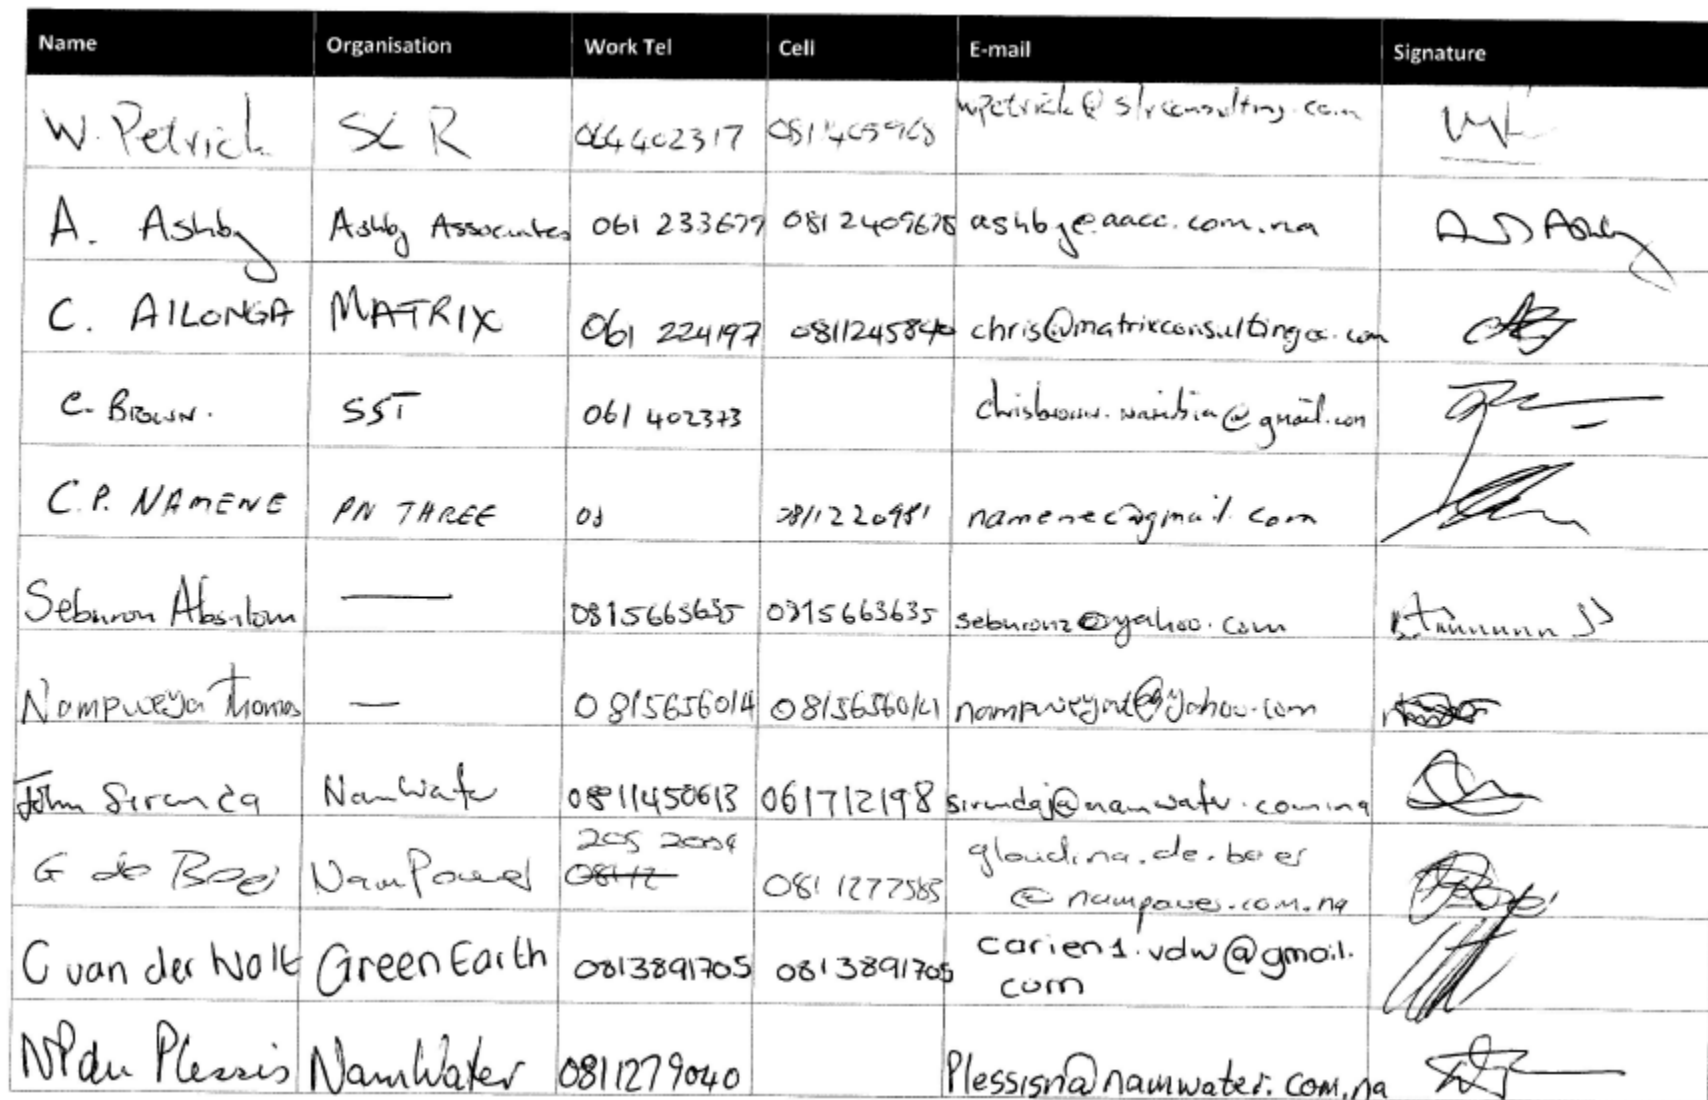 Name Organisation Work Tel Cell E-mail Signature
W. Petrick SLR 064402317 wpetrick@slrconsulting.com
A. Ashby Ashby Associates 061 233679 0812409678 ashby@aacc.com.na A Ashby
C. AILONGA MATRIX 061 224197 0811245840 chris@matrixconsultingcc.com
C. BROWN. SST 061 402373 chrisbrown.namibia@gmail.com
C.P. NAMENE PN THREE 0811220981 namenec@gmail.com
Seburon Absalom — 0815663635 0815663635 seburonz@yahoo.com
Nampweya Thomas — 0815656014 0815656014 nampweyat@yahoo.com
John Sirunda NamWater 0811450613 061712198 sirundaj@namwater.com.na
205 2004 gloudina.de.boer
G de Boer NamPower 0811277585 @nampower.com.na
C van der Walt Green Earth 0813891705 0813891705 carien1.vdw@gmail.
com
NP du Plessis NamWater 0811279040 Plessisn@namwater.com.na